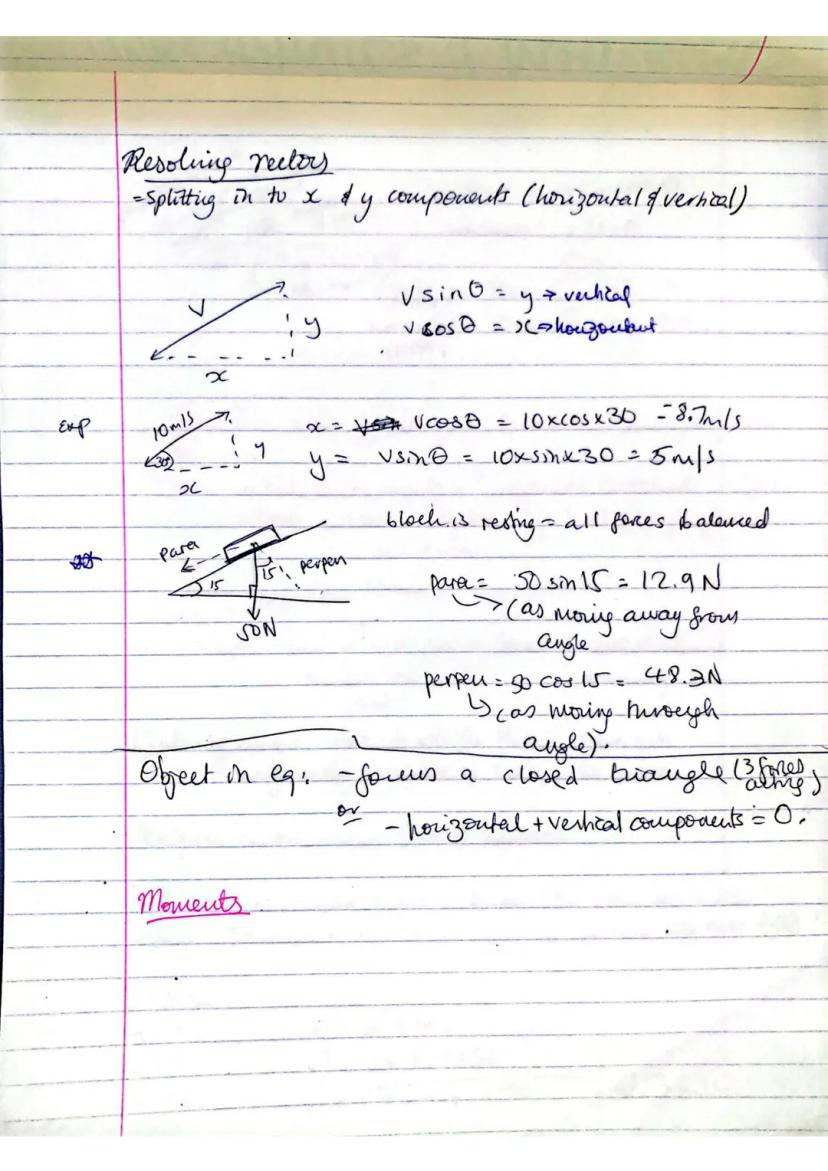 Resolving vectors
= Splitting in to x & y components (horizontal & vertical)
V
y
x
V sinθ = y → vertical
v cosθ = x → horizontal
Exp
10m/s
30
y
x
x = vcosθ = 10xcosx30 = 8.7m/s
y = vsinθ = 10xsinx30 = 5m/s
block is resting = all forces balanced
para
15
15
perpen
50N
para = 50 sin15 = 12.9N
(as moving away from
angle
perpen = 50 cos15 = 48.3N
(as moving through
angle).
Object in eq: - forms a closed triangle (3 forces
acting)
or
- horizontal + vertical components = 0.
Moments